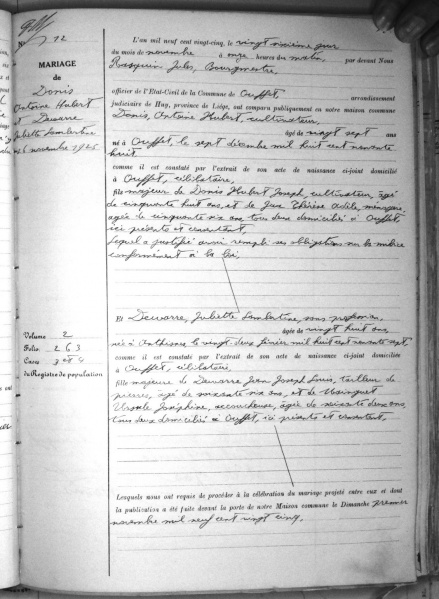 N° 12
MARIAGE
de
Donis
Antoine Hubert
et Dewarre
Juliette Lambertine
26 novembre 1925
Volume 2
Folio 263
Cases 3 et 4
du Registre de population
L'an mil neuf cent vingt-cinq, le vingt sixième jour
du mois de novembre à onze heures du matin, par devant Nous
Rasquin Jules, Bourgmestre,
officier de l'Etat-Civil de la Commune de Ouffet, arrondissement
judiciaire de Huy, province de Liége, ont comparu publiquement en notre maison commune
Donis, Antoine Hubert, cultivateur,
âgé de vingt sept ans
né à Ouffet, le sept décembre mil huit cent nonante
huit
comme il est constaté par l'extrait de son acte de naissance ci-joint domicilié
à Ouffet, célibataire,
fils majeur de Donis Hubert Joseph, cultivateur, âgé
de cinquante huit ans, et de Thérèse Odile, ménagère,
âgée de cinquante six ans tous deux domiciliés à Ouffet,
ici présents et consentant,
lequel a justifié avoir rempli ses obligations sur la milice
conformément à la loi;
Et Dewarre, Juliette Lambertine, sans profession,
âgée de vingt huit ans,
née à Anthisnes le vingt deux février mil huit cent nonante sept,
comme il est constaté par l'extrait de son acte de naissance ci-joint domiciliée
à Ouffet, célibataire,
fille majeure de Dewarre Jean Joseph Louis, tailleur de
pierres, âgé de soixante six ans, et de
Ursule Joséphine, accoucheuse, âgée de soixante deux ans,
tous deux domiciliés à Ouffet, ici présents et consentant,
Lesquels nous ont requis de procéder à la célébration du mariage projeté entre eux et dont
la publication a été faite devant la porte de notre Maison commune le Dimanche premier
novembre mil neuf cent vingt cinq.